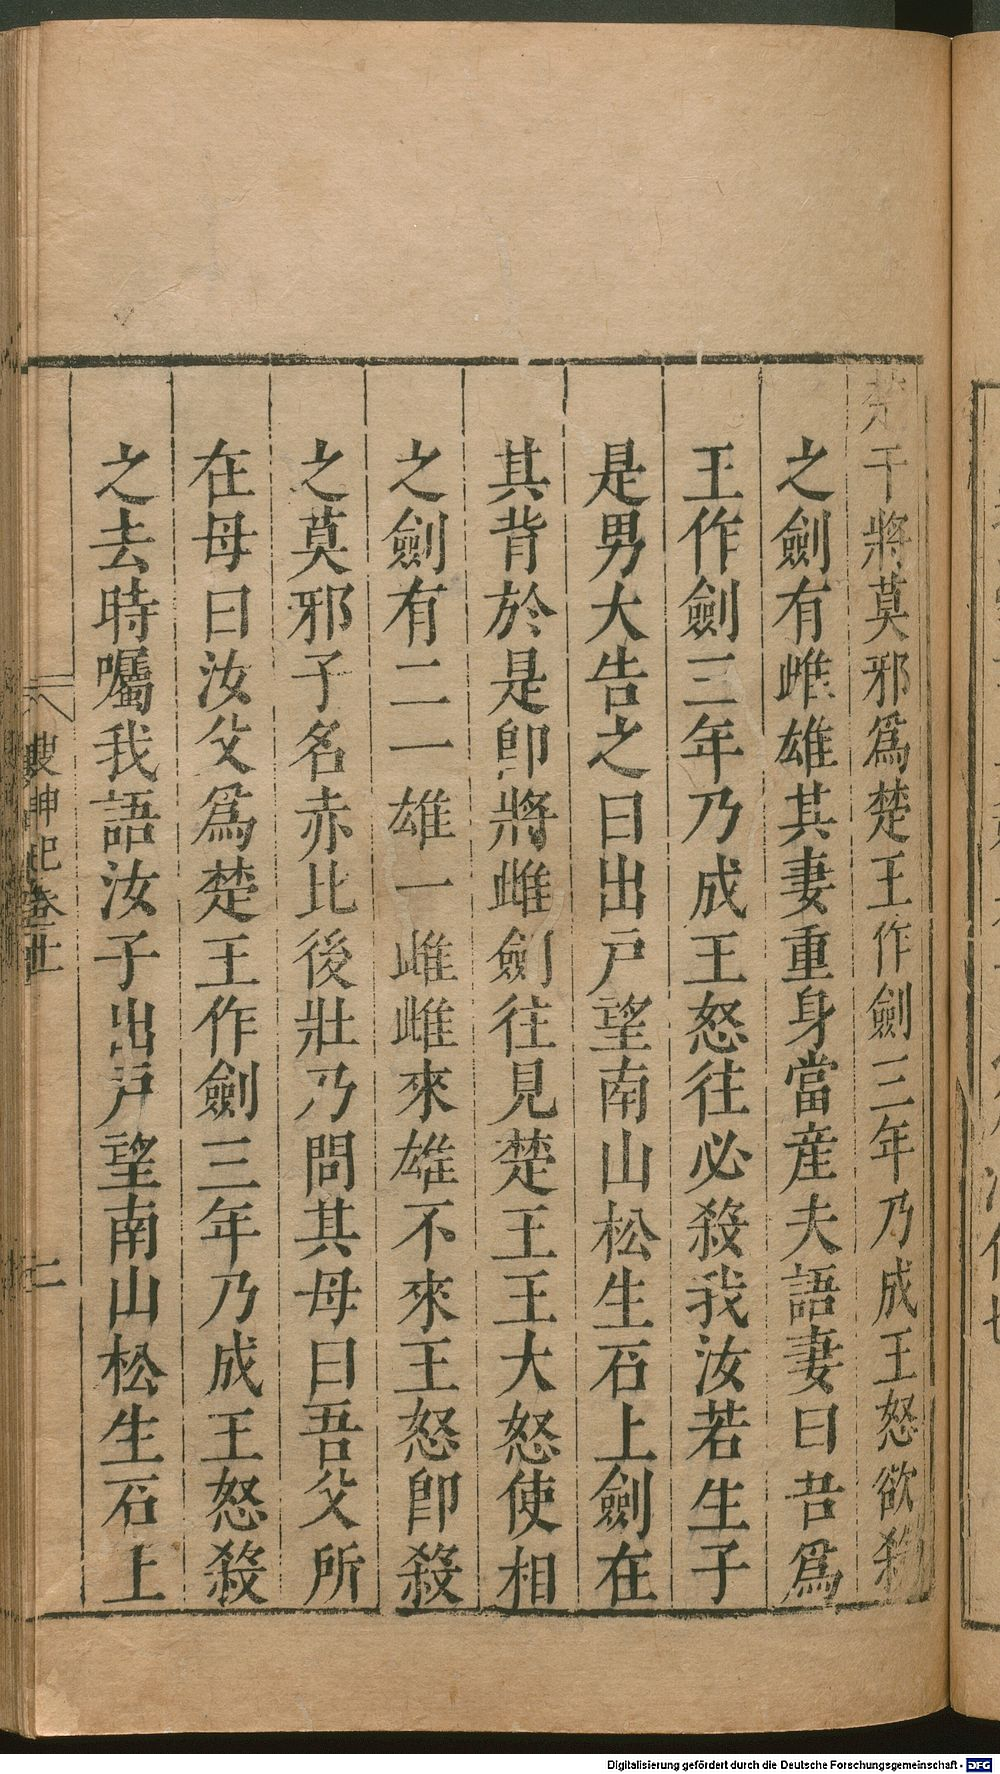 楚干將莫邪爲楚王作劍三年乃成王怒欲殺
之劍有雌雄其妻重身當産夫語妻曰吾爲
王作劍三年乃成王怒往必殺我汝若生子
是男大告之曰出戸望南山松生石上劍在
其背於是卽將雌劍往見楚王王大怒使相
之劍有二一雄一雌雌來雄不來王怒卽殺
之莫邪子名赤比後壯乃問其母曰吾父所
在母曰汝父爲楚王作劍三年乃成王怒殺
之去時囑我語汝子出戸望南山松生石上
搜神記卷十一
二
Digitalisierung gefördert durch die Deutsche Forschungsgemeinschaft - DFG